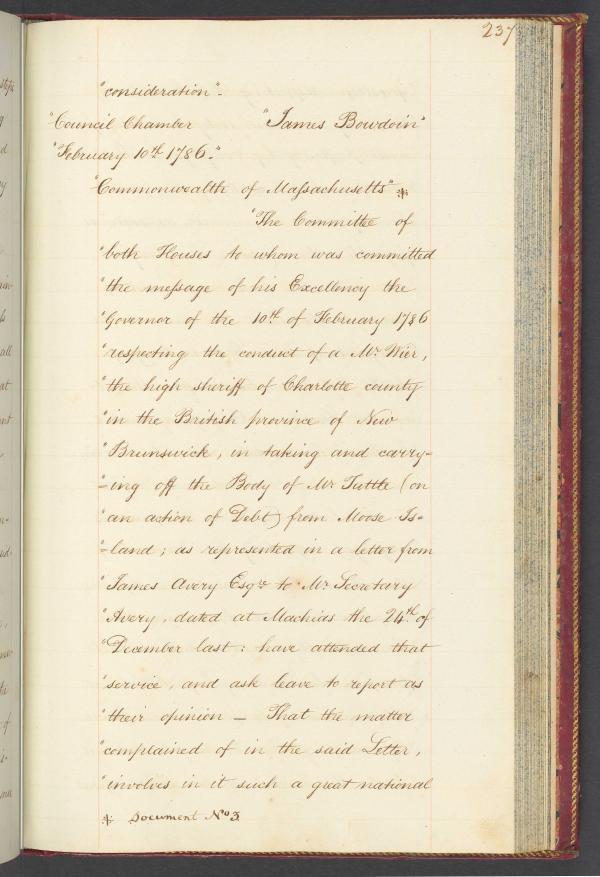 237
"consideration".
"Council Chamber "James Bowdoin"
"February 10th 1786."
"Commonwealth of Massachusetts" *
"The Committee of
"both Houses to whom was committed
"the message of his Excellency the
"Governor of the 10th of February 1786
"respecting the conduct of a Mr Wier,
"the high sheriff of Charlotte county
"in the British province of New
"Brunswick, in taking and carry-
"-ing off the Body of Mr Tuttle (on
"an action of Debt) from Moose Is-
"-land; as represented in a letter from
"James Avery Esqre to Mr Secretary
"Avery, dated at Machias the 24th of
"December last: have attended that
"service, and ask leave to report as
"their opinion — That the matter
"complained of in the said Letter,
"involves in it such a great national
* Document No 3.